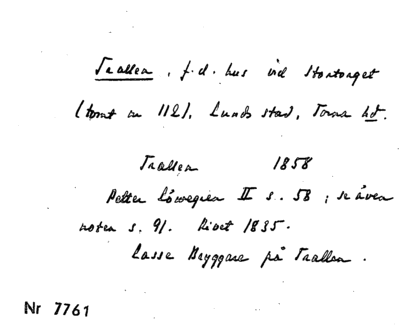 Trallen, f.d. hus vid Stortorget
(tomt nr 112), Lunds stad, Torna hd.
Trallen 1858
Petter Löwegren II s. 58; se även
noten s. 91. Rivet 1835.
Lasse Bryggare på Trallen.
Nr 7761